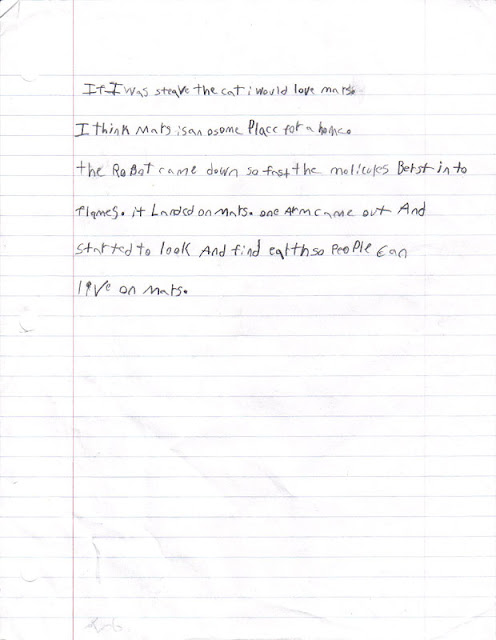 If I was steave the cat i would love mars.
I think Mars is an osome Place for a home.
the RoBot came down so fast the molicules Berst in to
flames. it Landed on mars. one Arm came out And
started to look And find earth so PeoPle can
live on mars.